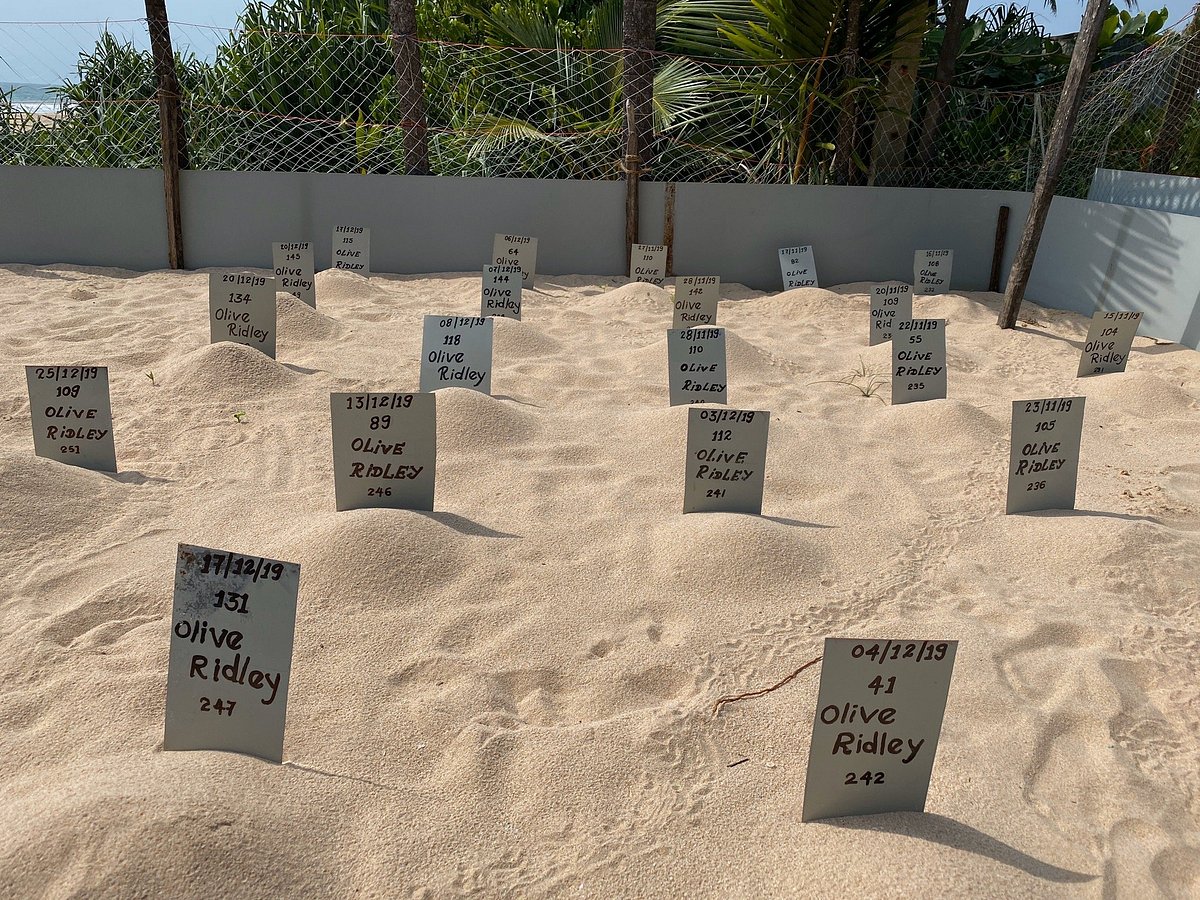 20/12/19
145
Olive
Ridley
115
RIDLEY
06/12/19
64
Olive
07/12/19
144
Olive
Ridley
110
OLIVE
82
OLIVE
108
OLIVE
RIDLEY
20/12/19
134
Olive
Ridley
28/11/19
142
Olive
Ridley
20/11/19
109
Olive
Ridley
15/11/19
104
Olive
Ridley
231
08/12/19
118
Olive
Ridley
28/11/19
110
OLIVE
RIDLEY
22/11/19
55
OLIVE
RIDLEY
235
25/12/19
109
OLIVE
RIDLEY
251
13/12/19
89
OLIVE
RIDLEY
246
03/12/19
112
OLIVE
RIDLEY
241
23/11/19
105
OLIVE
RIDLEY
236
17/12/19
131
Olive
Ridley
247
04/12/19
41
Olive
Ridley
242